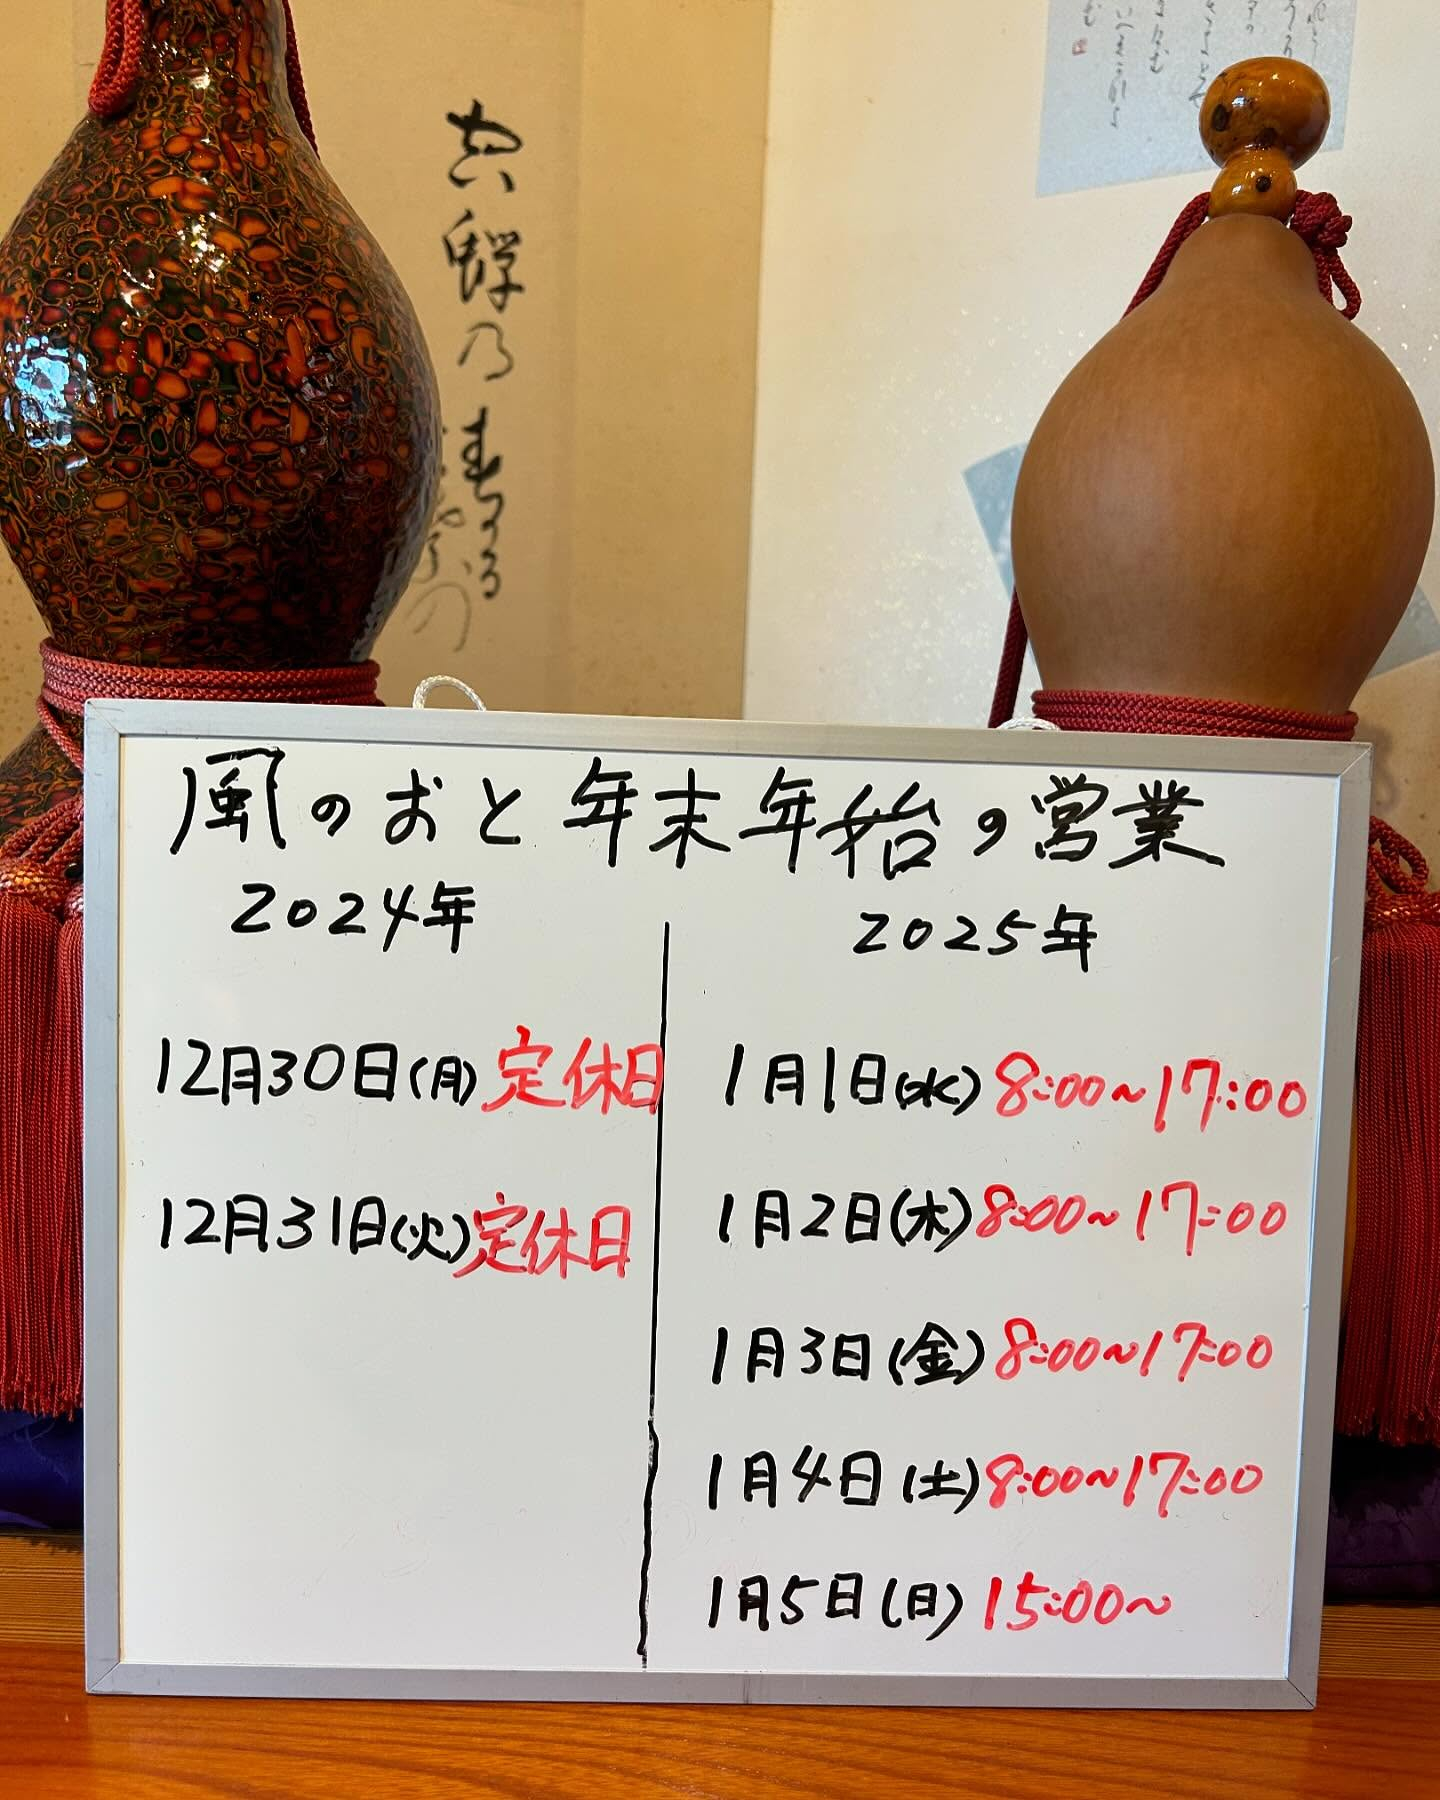 風のおと 年末年始の営業
2024年
12月30日(月)定休日
12月31日(火)定休日
2025年
1月1日(水)8:00~17:00
1月2日(木)8:00~17:00
1月3日(金)8:00~17:00
1月4日(土)8:00~17:00
1月5日(日)15:00~